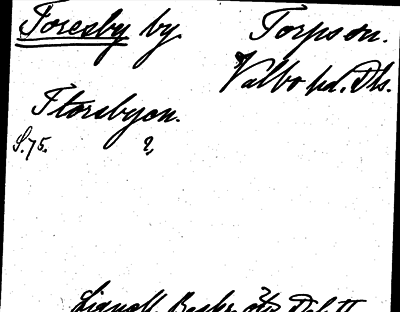 Foresby by
Torps sn.
Valbo hd. Dls.
Florsbyon.
S. 75. 2,
Lignell, Beskr. öfv. Dal II